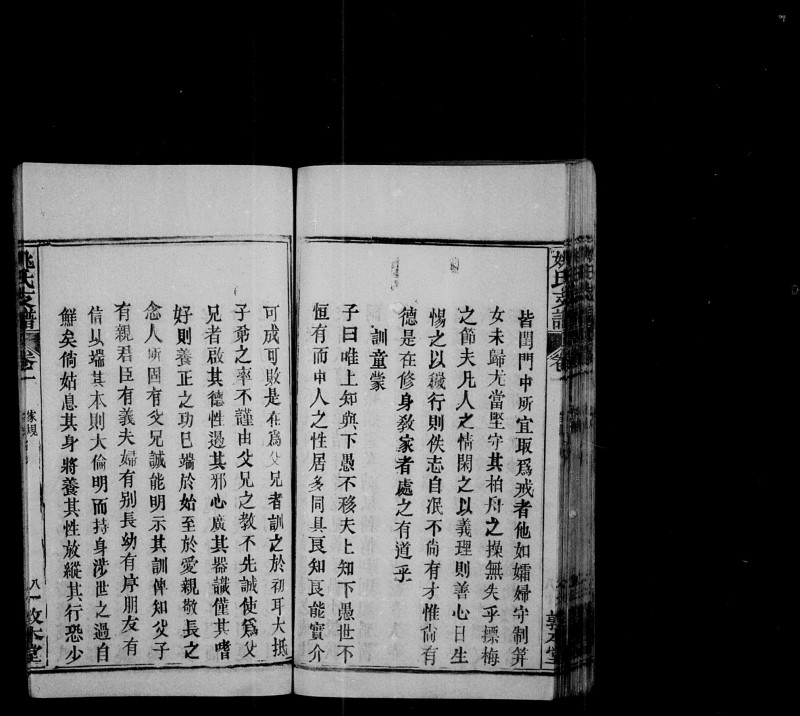 皆閨門中所宜取爲戒者他如孀婦守制笄
女未歸尤當堅守其柏舟之操無失乎摽梅
之節夫凡人之情閑之以義理則善心日生
惕之以穢行則佚志自泯不尙有才惟尙有
德是在修身敎家者處之有道乎
訓童蒙
子曰唯上知與下愚不移夫上知下愚世不
恒有而中人之性居多同具良知良能實介
可成可敗是在爲父兄者訓之於初耳大抵
子弟之率不謹由父兄之教不先誠使爲父
兄者啟其德性遏其邪心廣其器識僅其嗜
好則養正之功已端於始至於愛親敬長之
念人所固有父兄誠能明示其訓俾知父子
有親君臣有義夫婦有别長幼有序朋友有
信以端其本則大倫明而持身涉世之過自
鮮矣倘姑息其身將養其性放縱其行恐少
姚氏支譜
卷一
家規
八
敦本堂